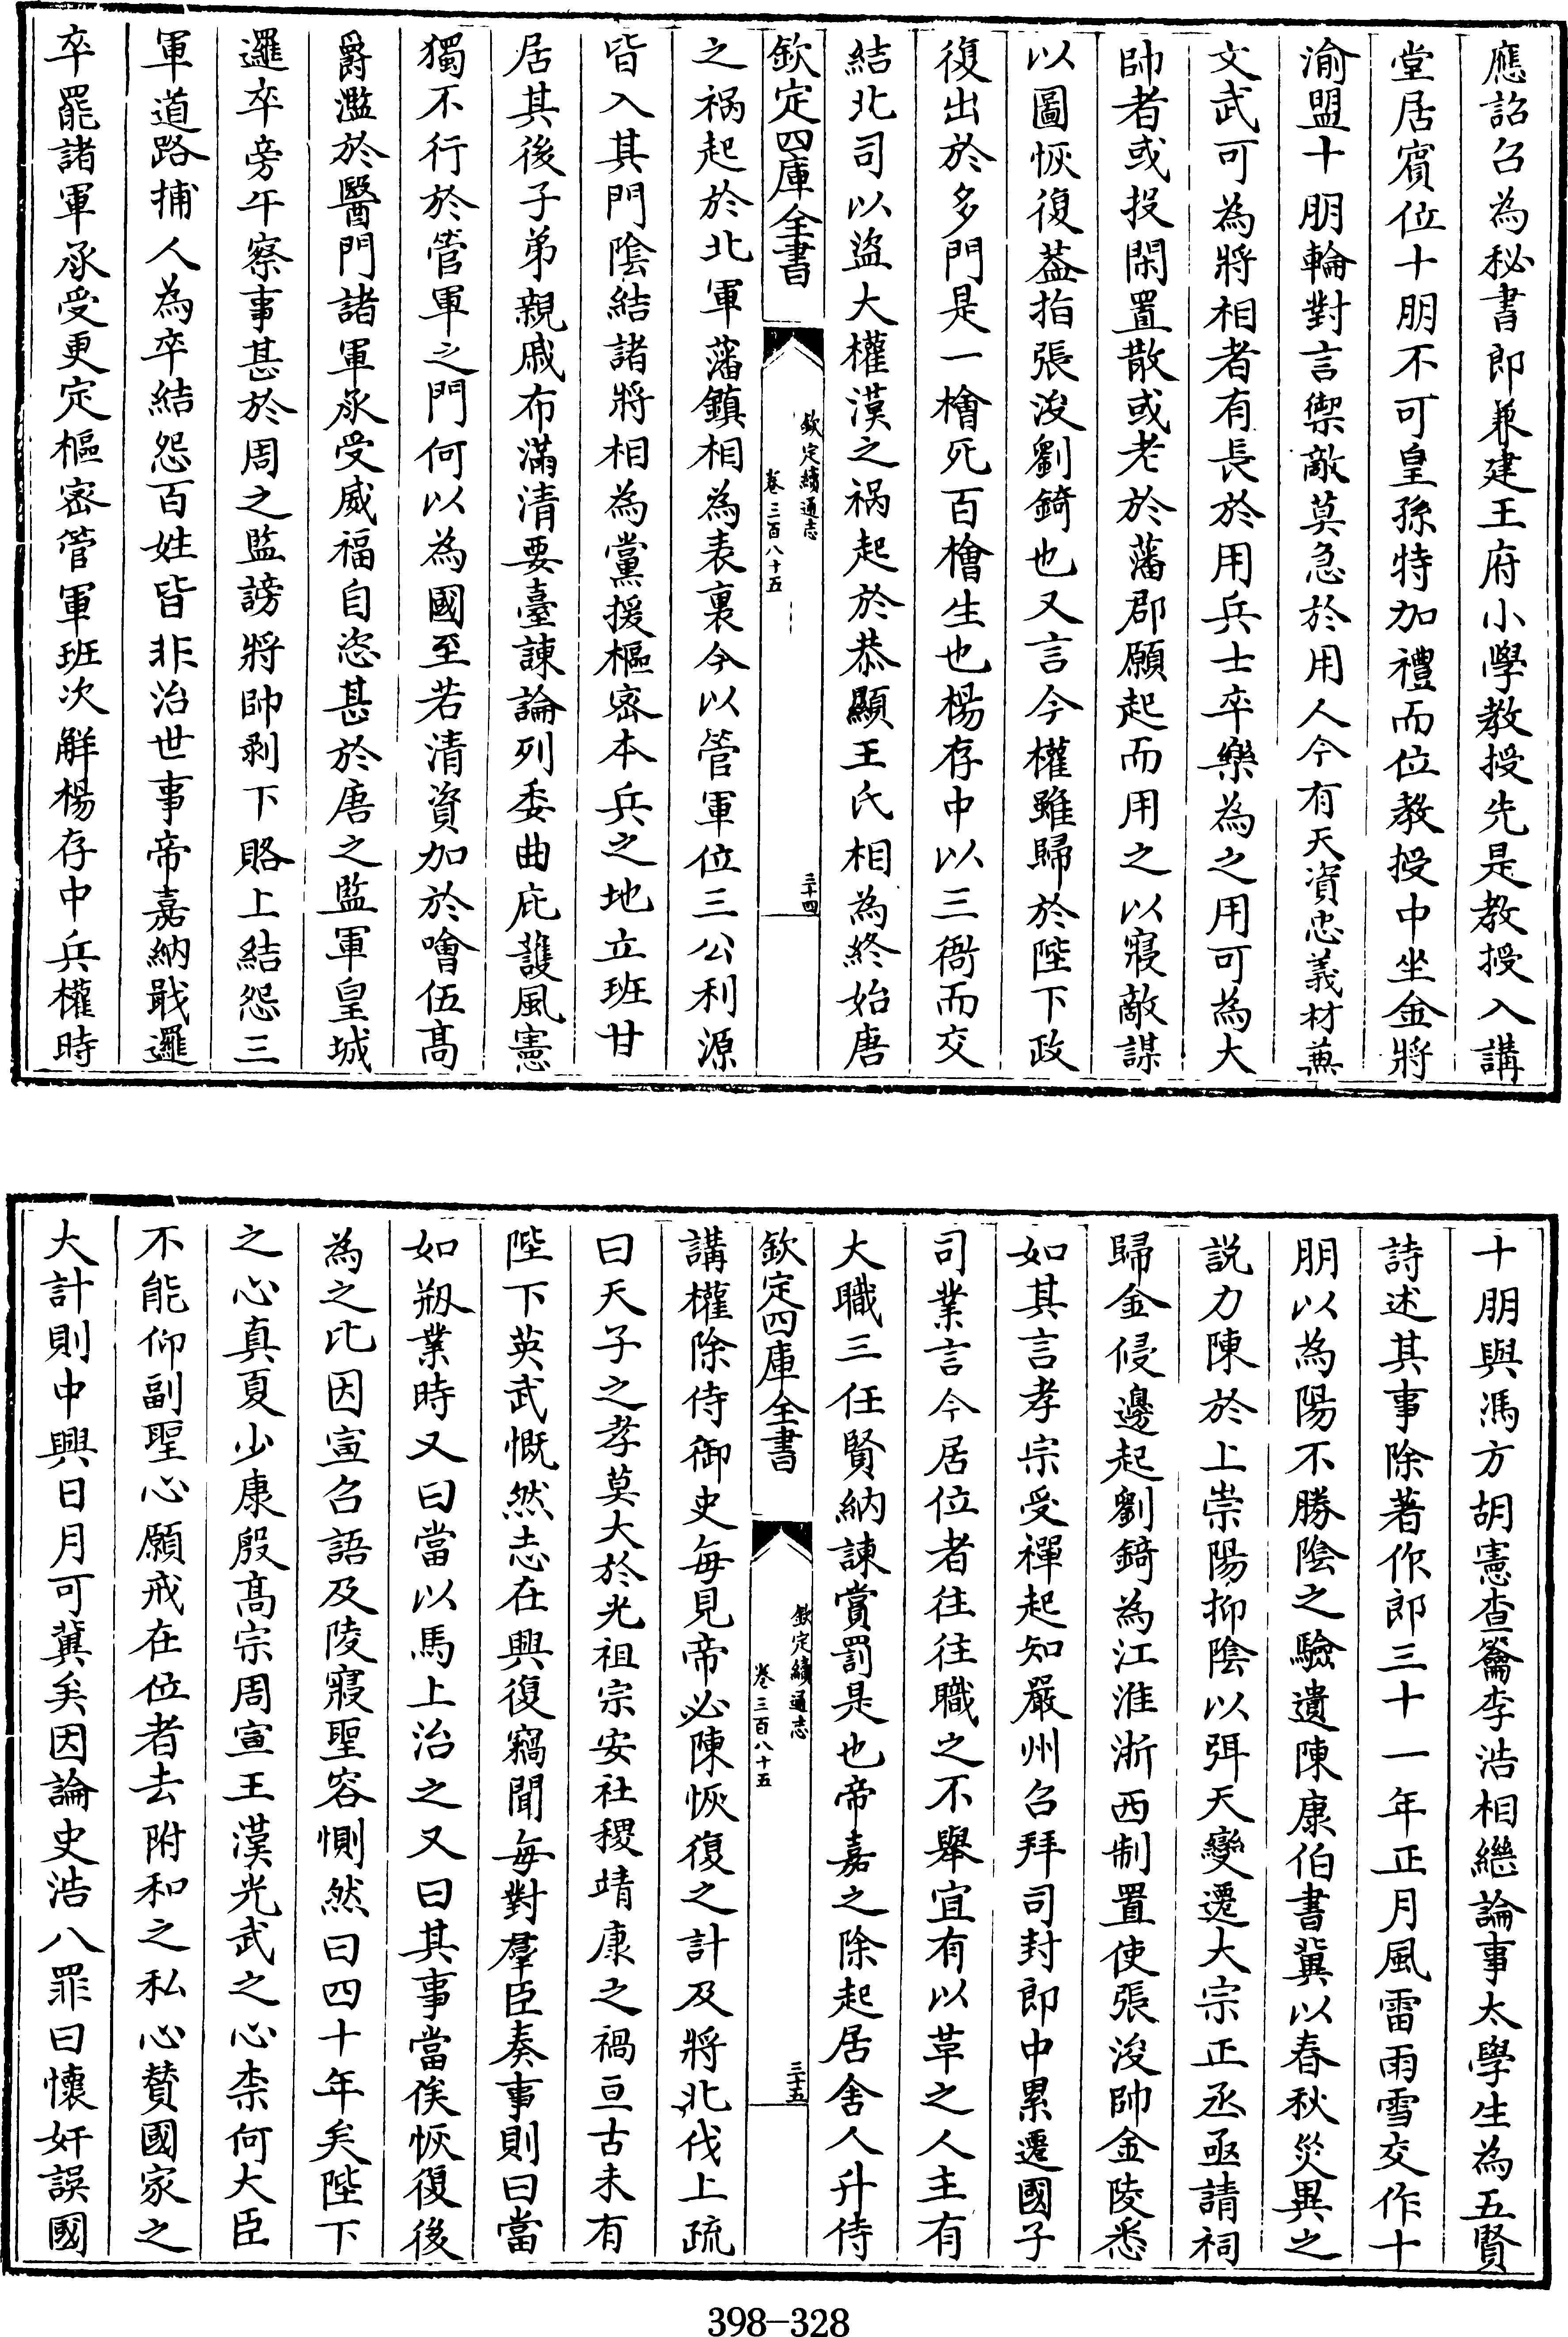 應詔召為秘書郎兼建王府小學教授先是教授入講
堂居賓位十朋不可皇孫特加禮而位教授中坐金將
渝盟十朋輪對言禦敵莫急於用人今有天資忠義材兼
文武可為將相者有長於用兵士卒樂為之用可為大
帥者或投閑置散或老於藩郡願起而用之以寢敵謀
以圖恢復葢指張浚劉錡也又言今權雖歸於陛下政
復出於多門是一檜死百檜生也楊存中以三衙而交
結北司以盜大權漢之禍起於恭顯王氏相為終始唐
欽定四庫全書
欽定續通志
卷三百八十五
三十四
之禍起於北軍藩鎮相為表裏今以管軍位三公利源
皆入其門陰結諸將相為黨援樞密本兵之地立班甘
居其後子弟親戚布滿清要臺諫論列委曲庇護風憲
獨不行於管軍之門何以為國至若清資加於噲伍高
爵濫於醫門諸軍承受威福自恣甚於唐之監軍皇城
邏卒旁午察事甚於周之監謗將帥剥下賂上結怨三
軍道路捕人為卒結怨百姓皆非治世事帝嘉納戢邏
卒罷諸軍承受更定樞密管軍班次解楊存中兵權時
十朋與馮方胡憲查籥李浩相繼論事太學生為五賢
詩述其事除著作郎三十一年正月風雷雨雪交作十
朋以為陽不勝陰之驗遺陳康伯書冀以春秋災異之
説力陳於上崇陽抑陰以弭天變遷大宗正丞亟請祠
歸金侵邊起劉錡為江淮浙西制置使張浚帥金陵悉
如其言孝宗受禪起知嚴州召拜司封郎中累遷國子
司業言今居位者往往職之不舉宜有以革之人主有
大職三任賢納諫賞罰是也帝嘉之除起居舍人升侍
欽定四庫全書
欽定續通志
卷三百八十五
三十五
講權除侍御史每見帝必陳恢復之計及將北伐上疏
曰天子之孝莫大於光祖宗安社稷靖康之禍亘古未有
陛下英武慨然志在興復竊聞每對羣臣奏事則曰當
如剏業時又曰當以馬上治之又曰其事當俟恢復後
為之比因宣召語及陵寢聖容惻然曰四十年矣陛下
之心真夏少康殷高宗周宣王漢光武之心柰何大臣
不能仰副聖心願戒在位者去附和之私心賛國家之
大計則中興日月可冀矣因論史浩八罪曰懷奸誤國
398-328